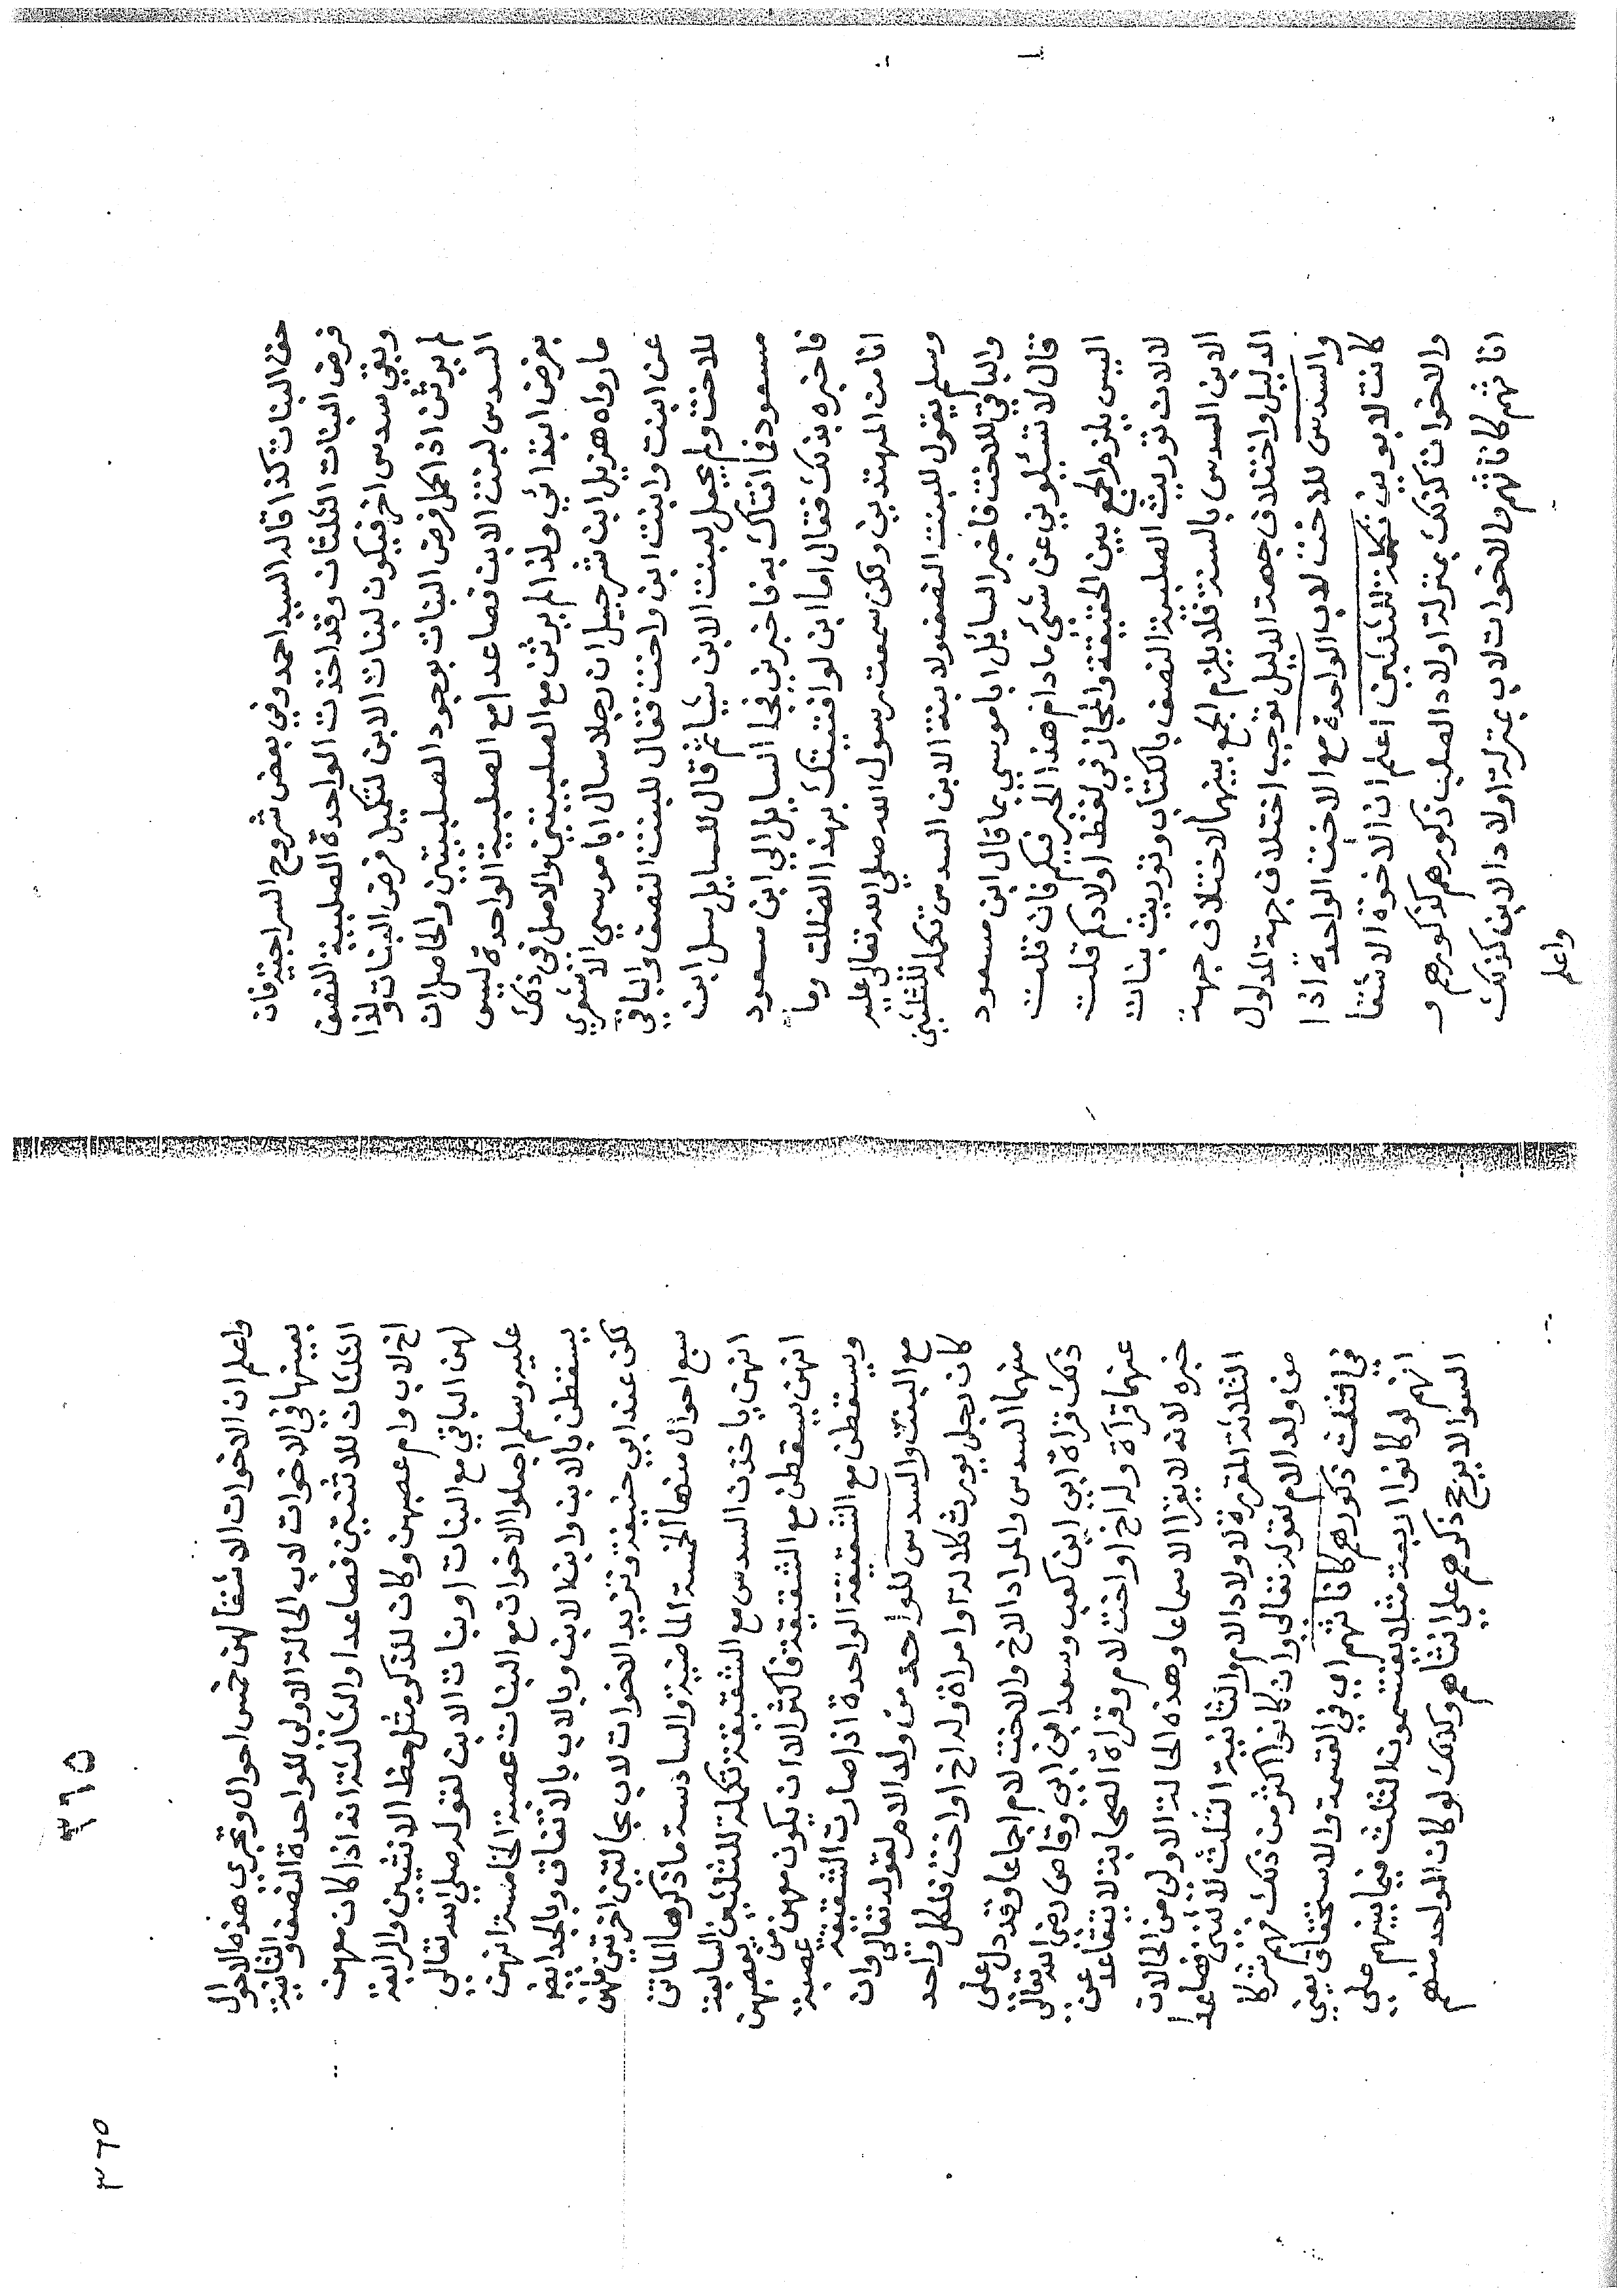 حق البنات كذا قاله السيد احمد وفي بعض شروح السراجية فان
فرض البنات الثلثان وقد اخذت الواحدة الصلبية النصف
وبقي سدس اخر فيكون لبنات الابن لتكميل فرض البنات ولذا
لم يرثن اذا كمل فرض البنات بوجود الصلبيتين والحاصل ان
السدس لبنت الابن فصاعدا مع الصلبية الواحدة ليس
بفرض ابتدائي ولذا لم يرثن مع الصلبيتين والاصل في ذلك
ما رواه هزيل ابن شرحبيل ان رجلا سال ابا موسي الاشعري
عن ابنت وابنت ابن واخت فقال للبنت النصف والباقي
للاخت ولم يجعل لبنت الابن شيا ثم قال للسايل سل ابن
مسعود فما افتاك به فاخبرني فجا السايل الي ابن مسعود
فاخبره بذلك فقال اما ابن لو افتيتك بهذا لضللت وما
انا من المهتدين ولكن سمعت رسول الله صلي الله تعالي عليه
وسلم يقول للبنت النصف ولابنة الابن السدس تكملة للثلثين
والباقي للاخت فاخبر السايل ابا موسي بما قال ابن مسعود
قال لا تسئلوني عن شئ ما دام هذا الحبر فيكم فان قلت
اليس يلزم الجمع بين الحقيقة والمجاز في لفظ اولادكم قلت
لا لان توريث الصلبية النصف بالكتاب وتوريث بنات
الابن السدس بالسنة فلا يلزم الجمع بينهما لاختلاف جهة
الدليل واختلاف جهة الدليل توجب اختلاف جهة المدلول
والسدس للاخت لاب الواحدة مع الاخت الواحدة اذا
كانت لابوين تكملة للثلثين اعلم ان الاخوة الاشقا
والاخوات كذلك بمنزلة اولاد الصلب ذكورهم كذكورهم و
اناثهم كاناثهم والاخوات لاب بمنزلة اولاد الابن كذلك
واعلم
٣٦٥
٣٦٥
واعلم ان الاخوات الاشقا لهن خمس احوال وتجري هذه الاحوال
بعينها في الاخوات لاب الحالة الاولي للواحدة النصف والثانية
الثلثان للاثنتين فصاعدا والثالثة انه اذا كان معهن
اخ لاب وام عصبهن وكان للذكر مثل حظ الانثيين والرابعة
لهن الباقي مع البنات او بنات الابن لقوله صلي الله تعالي
عليه وسلم اجعلوا الاخوات مع البنات عصبة الخامسة انهن
يسقطن بالابن وابن الابن وبالاب بالاتفاق وبالجد ايضا
لكن عند ابي حنيفة وتزيد الاخوات لاب بحالتين اخريين فلهن
سبع احوال منها الخمسة الماضية والسادسة ما ذكرها الماتن
انهن ياخذن السدس مع الشقيقة تكملة للثلثين السابعة
انهن يسقطن مع الشقيقة فاكثر الا ان يكون معهن من يعصبهن
ويسقطن مع الشقيقة الواحدة اذا صارت الشقيقة عصبة
مع البنت والسدس للواحد من ولد الام لقوله تعالي وان
كان رجل يورث كلالة او امراة وله اخ او اخت فلكل واحد
منهما السدس والمراد الاخ والاخت لام اجماعا وقد دل علي
ذلك قراة ابي ابن كعب وسعد ابن ابي وقاص رضي الله تعالي
عنهما قرآة وله اخ او اخت لام وقراة الصحابة لا تتقاعد عن
خبره لانه لا يقرا الا سماعا وهذه الحالة الاولي من الحالات
الثلاثة المقررة لاولاد الام والثانية الثلث للاثنين فصاعدا
من ولد الام لقوله تعالي وان كانوا اكثر من ذلك فهم شركا
في الثلث ذكورهم كاناثهم اي في القسمة والاستحقاق يعني
انهم لو كانوا اربعة مثلا يقتسمون الثلث فيما بينهم علي
السوا لا يرجح ذكرهم علي انثاهم وكذلك لو كان الواحد منهم